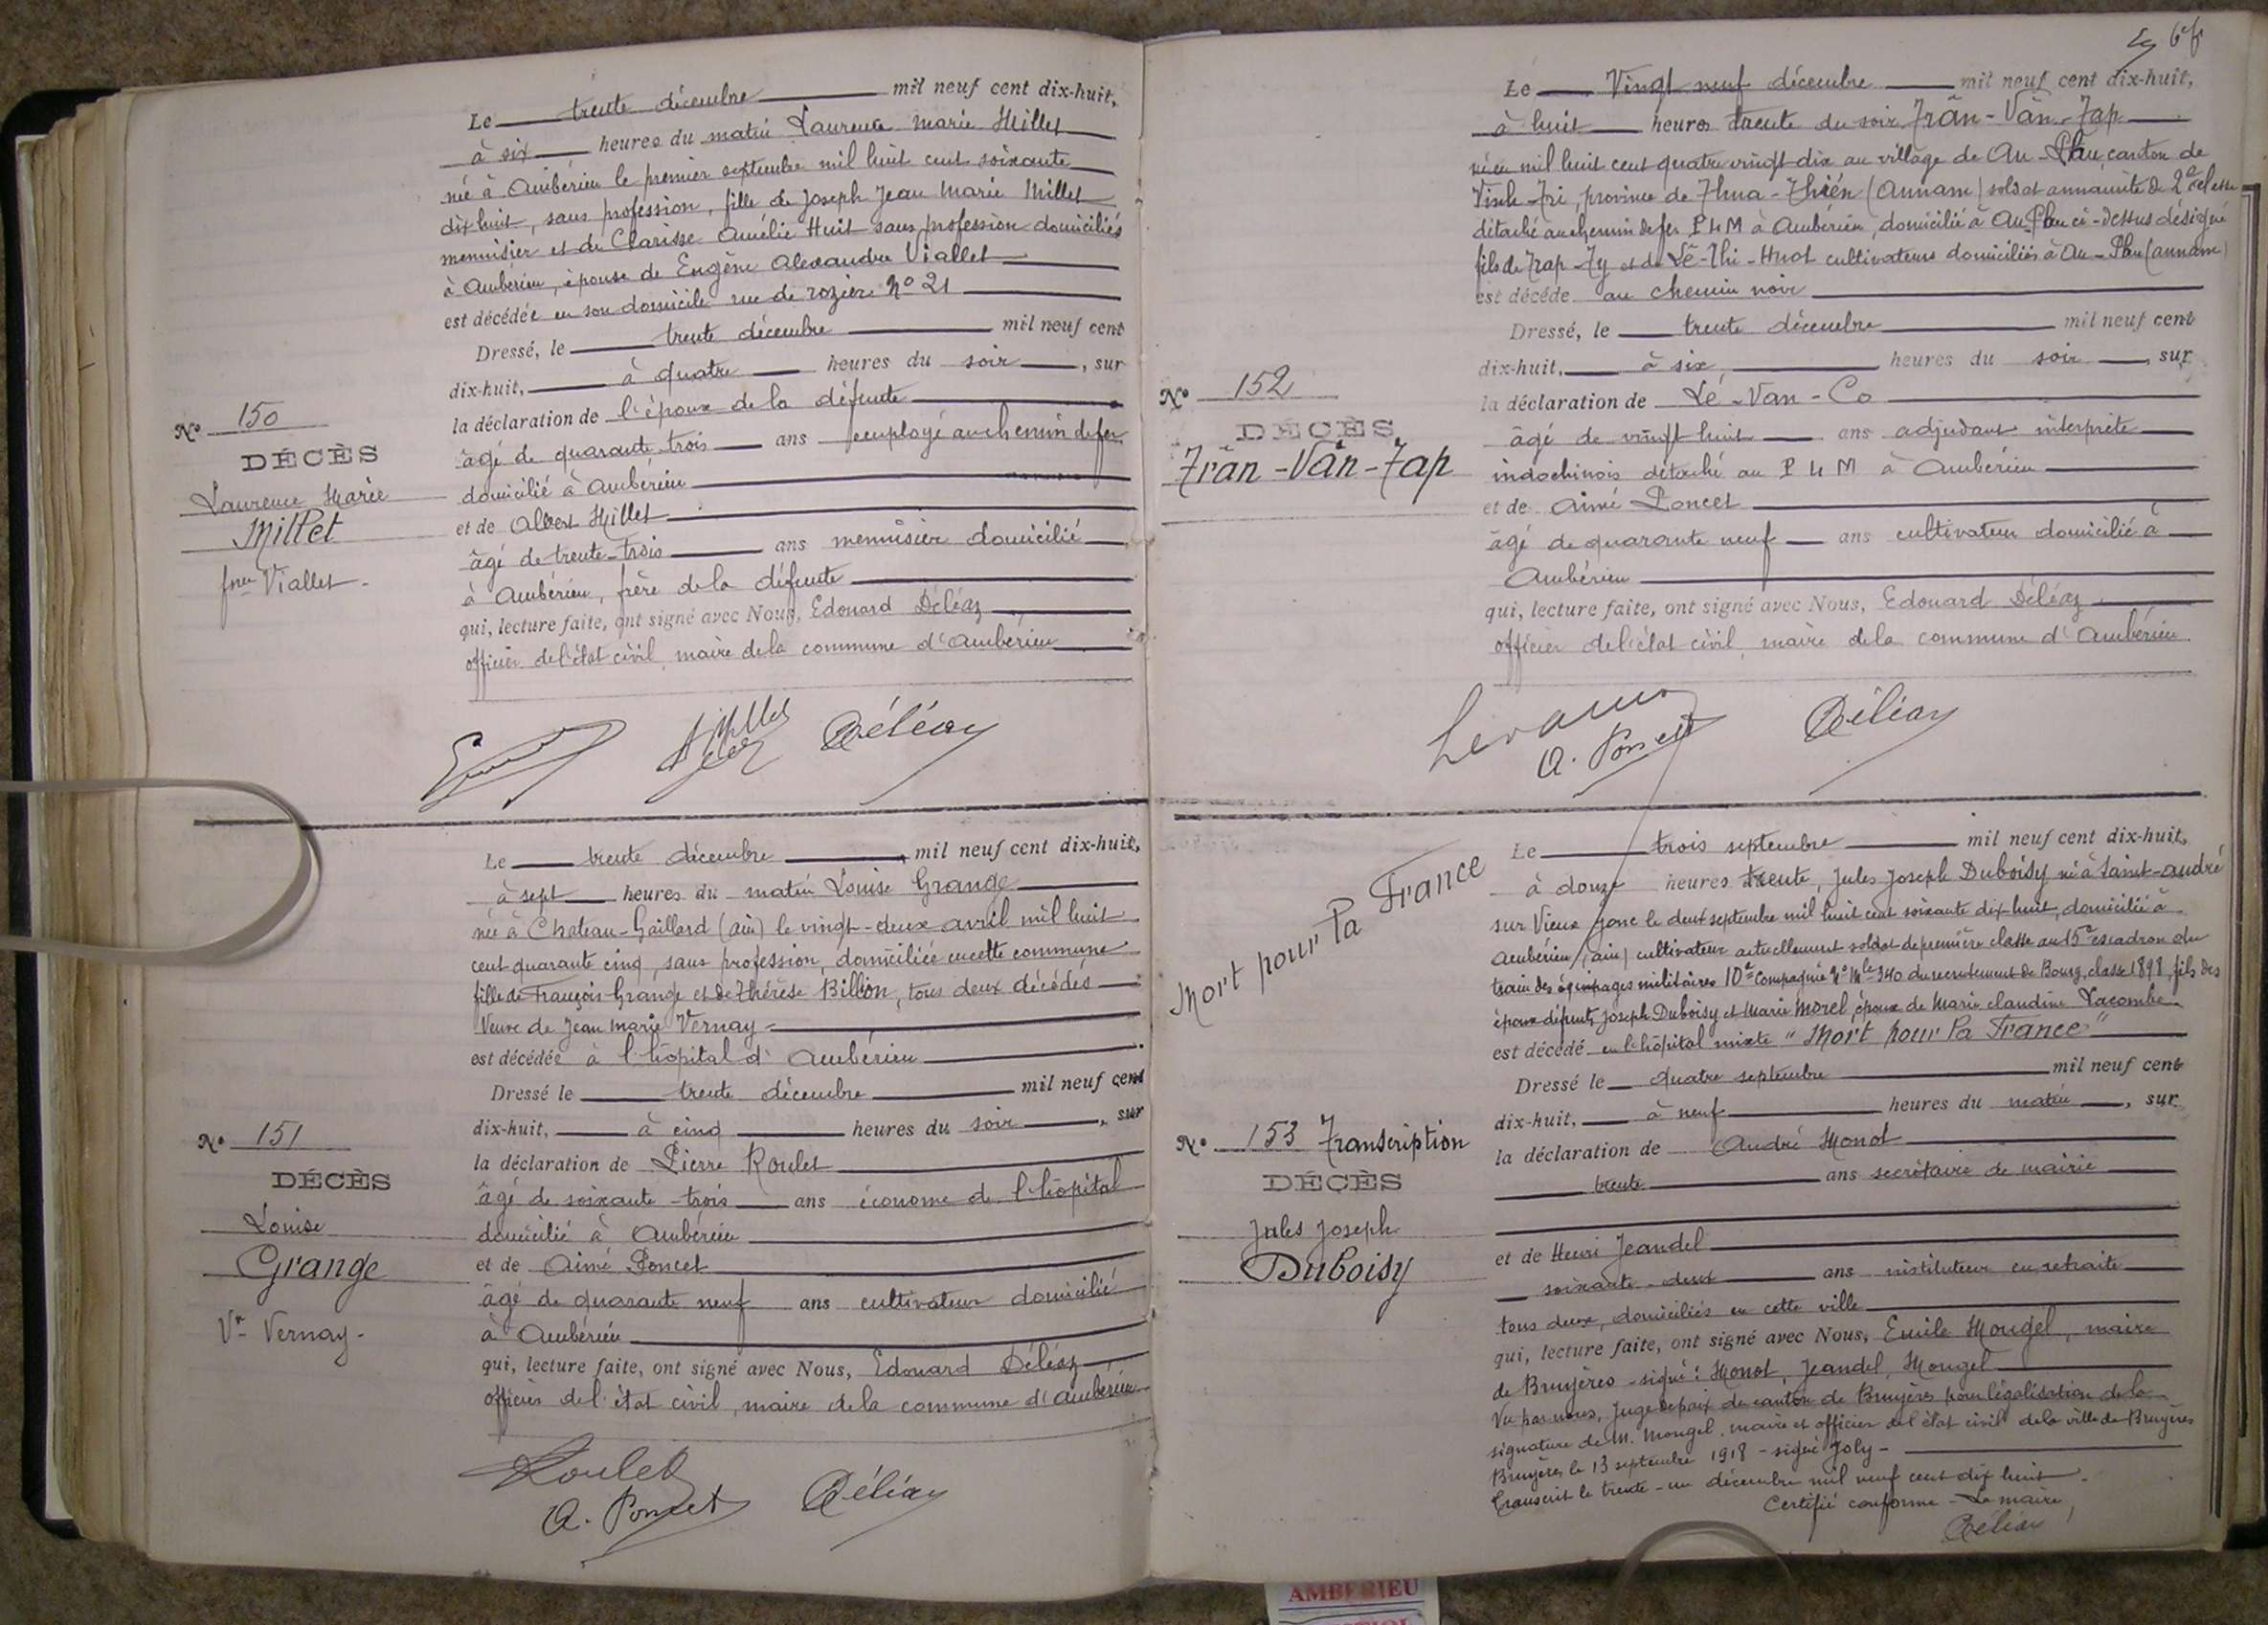 Le trente décembre mil neuf cent dix-huit,
à six heures du matin Laurence Marie Millet
née à Ambérieu le premier septembre mil huit cent soixante
dix huit, sans profession, fille de Joseph Jean Marie Millet
menuisier et de Clarisse Amélie Huit sans profession domiciliés
à Ambérieu, épouse de Eugène Alexandre Viallet
est décédée en son domicile rue de rozier No 21
Dressé, le trente décembre mil neuf cent
dix-huit, à quatre heures du soir, sur
la déclaration de l'époux de la défunte
âgé de quarante trois ans employé au chemin de fer
domicilié à Ambérieu
et de Albert Millet
âgé de trente-trois ans menuisier domicilié
à Ambérieu, frère de la défunte
qui, lecture faite, ont signé avec Nous, Edouard Déléaz
officier de l'état civil, maire de la commune d'Ambérieu
No 150
DÉCÈS
Laurence Marie
Millet
fme Viallet
Millet
Déléaz
Le trente décembre mil neuf cent dix-huit,
à sept heures du matin Louise Grange
née à Chateau-Gaillard (ain) le vingt-deux avril mil huit
cent quarante cinq, sans profession, domiciliée en cette commune
fille de François Grange et de Thérèse Billion, tous deux décédés
Veuve de Jean Marie Vernay
est décédée à l'hôpital d'Ambérieu
Dressé le trente décembre mil neuf cent
dix-huit, à cinq heures du soir, sur
la déclaration de Pierre Roulet
âgé de soixante-trois ans économe de l'hôpital
domicilié à Ambérieu
et de Aimé Poncet
âgé de quarante neuf ans cultivateur domicilié
à Ambérieu
qui, lecture faite, ont signé avec Nous, Edouard Déléaz
officier de l'état civil, maire de la commune d'Ambérieu
No 151
DÉCÈS
Louise
Grange
Vve Vernay
Roulet
A. Poncet Déléaz
Le Vingt neuf décembre mil neuf cent dix-huit,
à huit heures trente du soir Trân-Vân-Tap
né en mil huit cent quatre vingt dix au village de An-Phu, canton de
Vinh-Tri, province de Thua-Thién (Annam) soldat annamite de 2e classe
détaché au chemin de fer PLM à Ambérieu, domicilié à An Phu ci-dessus désigné
fils de Trap-Ty et de Lê-Thi-Huot cultivateurs domiciliés à An-Phu (annam)
est décédé au chemin noir
Dressé, le trente décembre mil neuf cent
dix-huit, à six heures du soir, sur
la déclaration de Lé-Van-Co
âgé de vingt huit ans adjudant interprète
indochinois détaché au PLM à Ambérieu
et de Aimé Poncet
âgé de quarante neuf ans cultivateur domicilié à
Ambérieu
qui, lecture faite, ont signé avec Nous, Edouard Déléaz
officier de l'état civil, maire de la commune d'Ambérieu
No 152
DÉCÈS
Trân-Vân-Tap
Levanco
A. Poncet Déléaz
Le trois septembre mil neuf cent dix-huit,
à douze heures trente, Jules Joseph Duboisy né à Saint-André
sur Vieux Jonc le deux septembre mil huit cent soixante dix huit, domicilié à
Ambérieu (ain) cultivateur actuellement soldat de première classe au 15e escadron du
train des équipages militaires 10e Compagnie No Mle 340 du recrutement de Bourg, classe 1898, fils des
époux défunts Joseph Duboisy et Marie Morel, époux de Marie Claudine Lacombe
est décédé en l'hôpital mixte "Mort pour la France"
Dressé le quatre septembre mil neuf cent
dix-huit, à neuf heures du matin, sur
la déclaration de André Monot
trente ans secrétaire de mairie
et de Henri Jeandel
soixante-deux ans instituteur en retraite
tous deux, domiciliés en cette ville
qui, lecture faite, ont signé avec Nous, Emile Mougel, maire
de Bruyères - signé : Monot, Jeandel, Mougel
Vu par nous, juge de paix du canton de Bruyères pour légalisation de la
signature de M. Mougel, maire et officier de l'état civil de la ville de Bruyères
Bruyères le 13 septembre 1918 - signé Joly -
Transcrit le trente-un décembre mil neuf cent dix huit.
Certifié conforme - Le maire,
Déléaz
Mort pour la France
No 153 Transcription
DÉCÈS
Jules Joseph
Duboisy
AMBERIEU